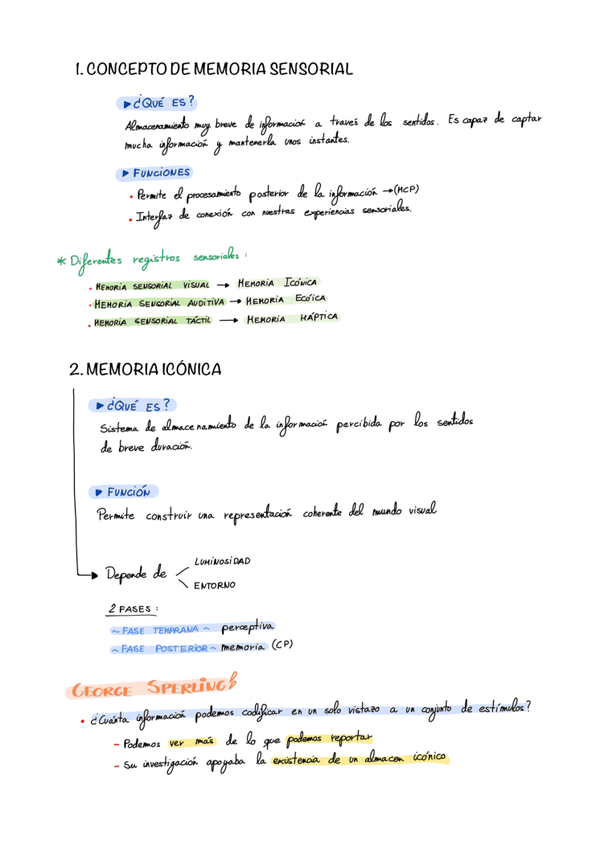 1. CONCEPTO DE MEMORIA SENSORIAL
▶ ¿QUÉ ES?
Almacenamiento muy breve de información a través de los sentidos. Es capaz de captar
mucha información y mantenerla unos instantes.
▶ FUNCIONES
• Permite el procesamiento posterior de la información → (MCP)
• Interfaz de conexión con nuestras experiencias sensoriales.
* Diferentes registros sensoriales:
• MEMORIA SENSORIAL VISUAL → MEMORIA ICÓNICA
• MEMORIA SENSORIAL AUDITIVA → MEMORIA ECOICA
• MEMORIA SENSORIAL TÁCTIL → MEMORIA HÁPTICA
2. MEMORIA ICÓNICA
▶ ¿QUÉ ES?
Sistema de almacenamiento de la información percibida por los sentidos
de breve duración.
▶ FUNCIÓN
Permite construir una representación coherente del mundo visual
Depende de
LUMINOSIDAD
ENTORNO
2 FASES:
~ FASE TEMPRANA ~ perceptiva
~ FASE POSTERIOR ~ memoria (CP)
GEORGE SPERLING
• ¿Cuánta información podemos codificar en un solo vistazo a un conjunto de estímulos?
- Podemos ver más de lo que podemos reportar
- Su investigación apoyaba la existencia de un almacen icónico